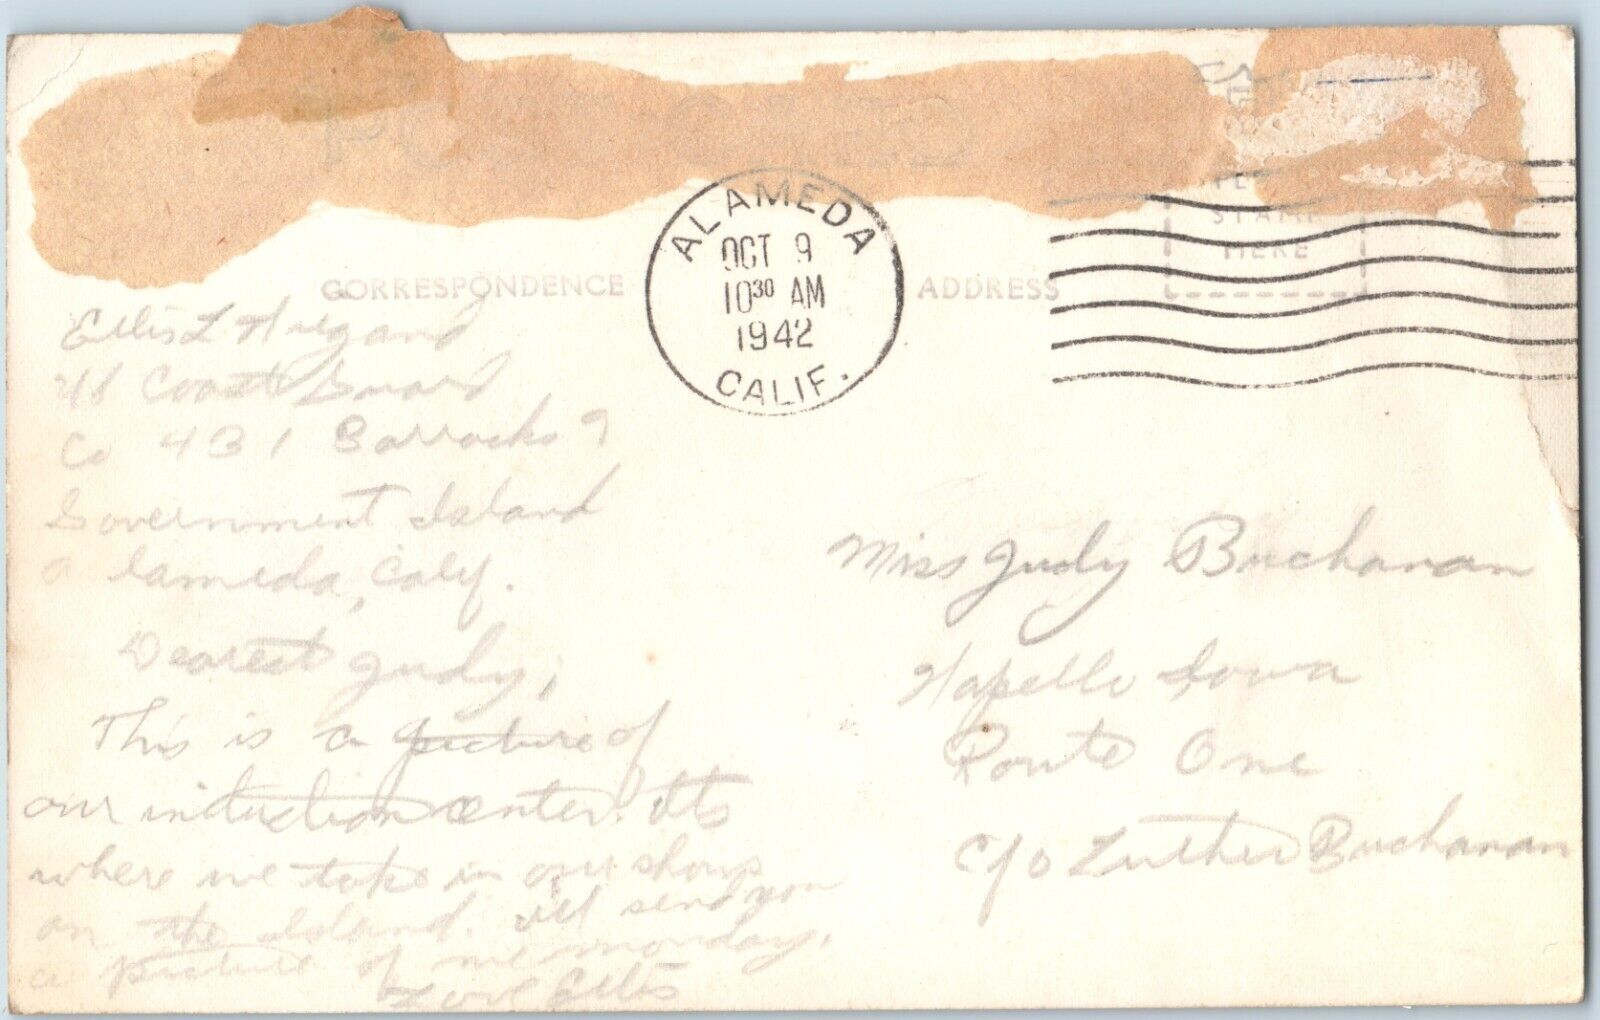 POST CARD
PLACE
STAMP
HERE
ALAMEDA
OCT 9
10 30 AM
1942
CALIF.
CORRESPONDENCE
ADDRESS
Ellis L Wiegand
Coast Guard
Co 431 Barracks 9
Government Island
Alameda, Calif.
Dearest Judy,
This is a picture of
our induction center. Its
where we take in our shows
on the Island. I'll send you
a picture of me monday.
Love Ellis
Miss Judy Buchanan
Wapello Iowa
Route One
C/o Luther Buchanan